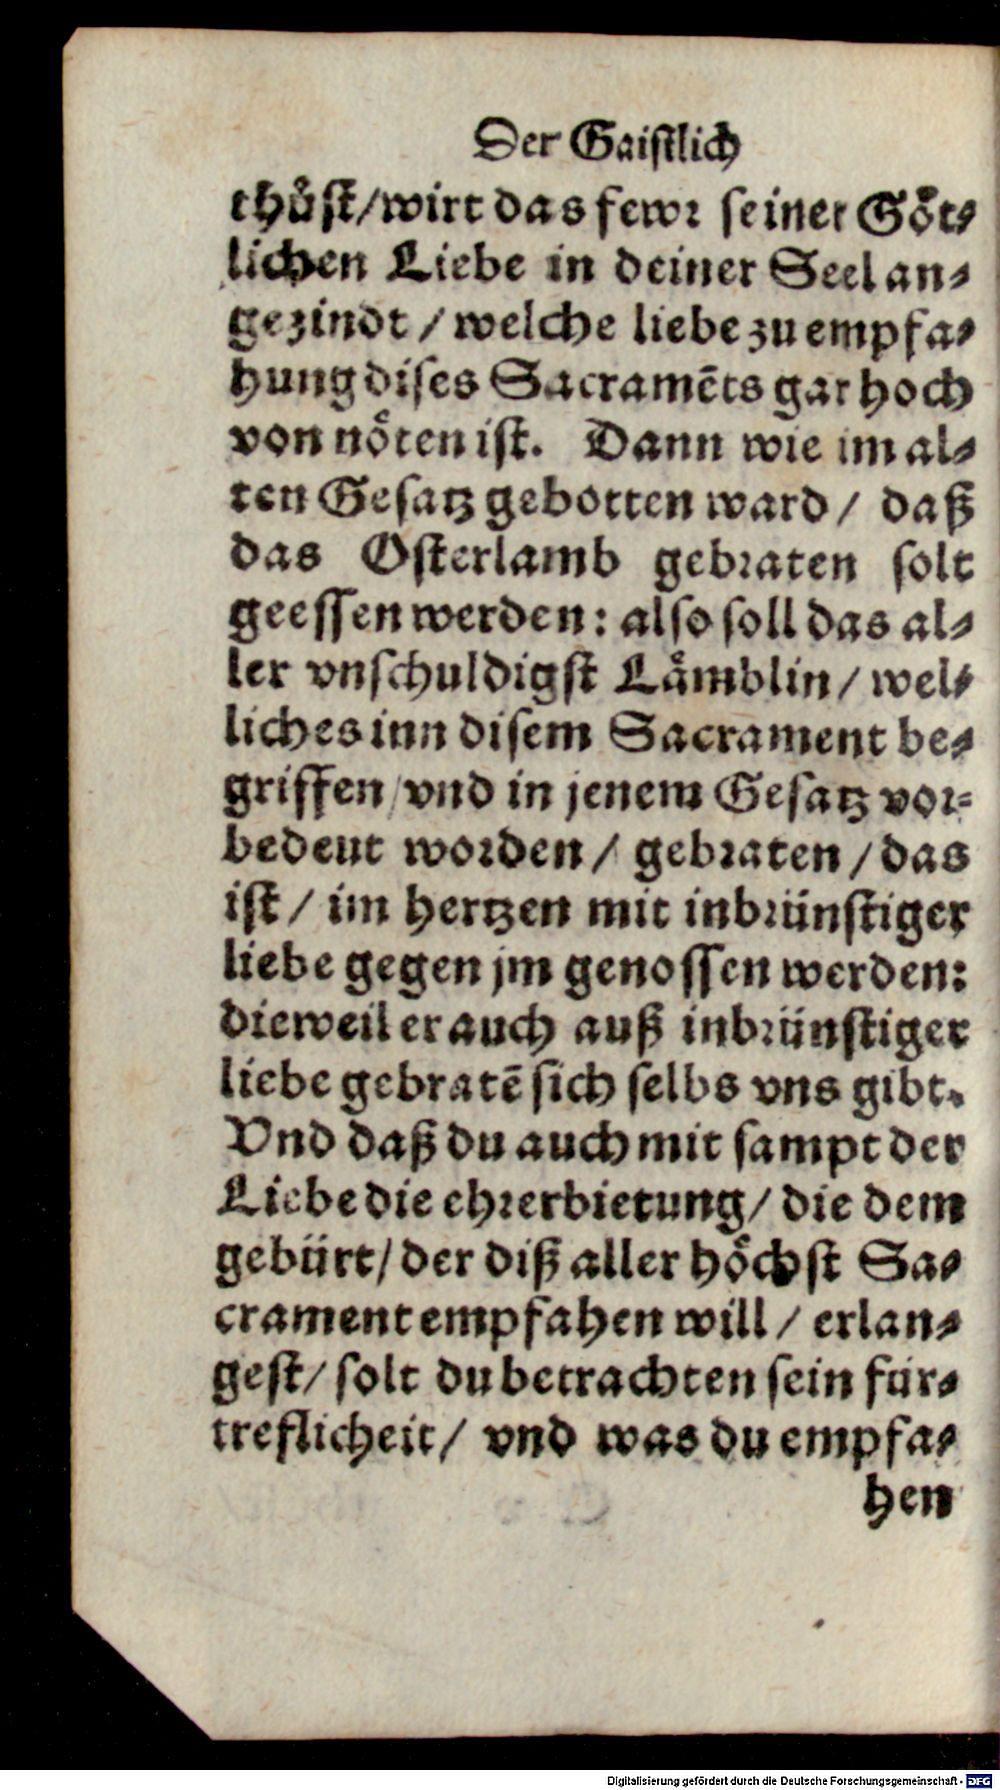 Der Gaistlich
thůst/wirt das fewr seiner Göt⸗
lichen Liebe in deiner Seel an⸗
gezindt / welche liebe zu empfa⸗
hung dises Sacramēts gar hoch
von nöten ist. Dann wie im al⸗
ten Gesatz gebotten ward / daß
das Osterlamb gebraten solt
geessen werden: also soll das al⸗
ler vnschuldigst Lämblin / wel⸗
liches inn disem Sacrament be⸗
griffen / vnd in jenem Gesatz vor⸗
bedeut worden / gebraten / das
ist / im hertzen mit inbrünstiger
liebe gegen jm genossen werden:
dieweil er auch auß inbrünstiger
liebe gebratē sich selbs vns gibt.
Vnd daß du auch mit sampt der
Liebe die ehrerbietung / die dem
gebürt / der diß aller höchst Sa⸗
crament empfahen will / erlan⸗
gest / solt du betrachten sein für⸗
treflicheit / vnd was du empfa⸗
hen
Digitalisierung gefördert durch die Deutsche Forschungsgemeinschaft - DFG